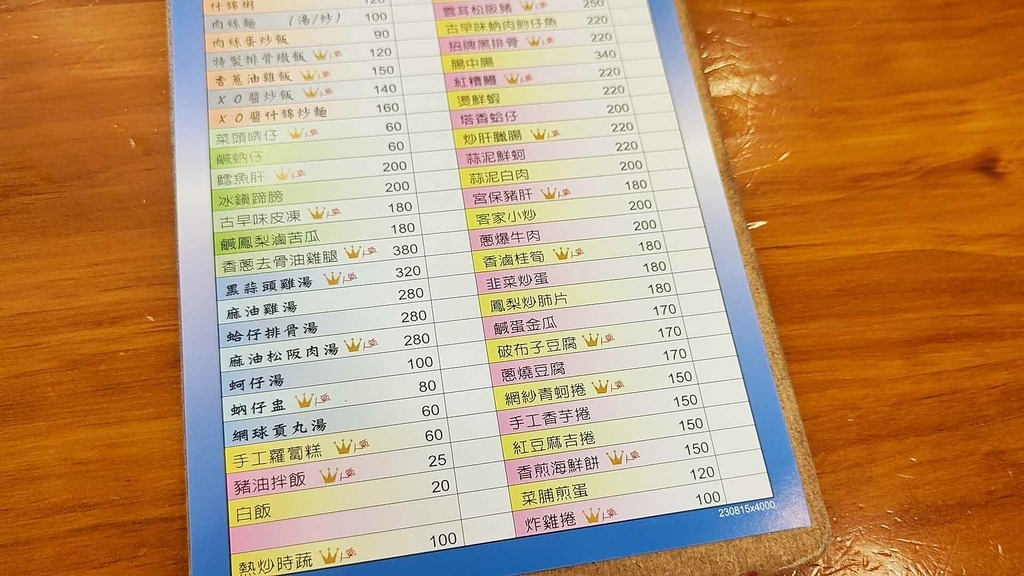 什錦粥 120
肉絲麵 (湯/炒) 100
肉絲蛋炒飯 90
特製排骨燉飯 人氣 120
香蔥油雞飯 人氣 150
XO醬炒飯 人氣 140
XO醬什錦炒麵 160
菜頭 仔 人氣 60
鹹蚋仔 60
鱈魚肝 人氣 200
冰鎮蹄膀 200
古早味皮凍 人氣 180
鹹鳳梨滷苦瓜 180
香蔥去骨油雞腿 人氣 380
黑蒜頭雞湯 人氣 320
麻油雞湯 280
蛤仔排骨湯 280
麻油松阪肉湯 人氣 280
蚵仔湯 100
蚋仔盅 人氣 80
網球貢丸湯 60
手工蘿蔔糕 人氣 60
豬油拌飯 人氣 25
白飯 20
熱炒時蔬 人氣 100
雲耳松阪豬 人氣 250
古早味蚋肉魩仔魚 220
招牌黑排骨 人氣 220
腸中腸 340
紅糟鰻 人氣 220
燙鮮蝦 220
塔香蛤仔 200
炒肝臘腸 人氣 220
蒜泥鮮蚵 220
蒜泥白肉 200
宮保豬肝 人氣 180
客家小炒 200
蔥爆牛肉 200
香滷桂筍 人氣 180
韭菜炒蛋 180
鳳梨炒肺片 180
鹹蛋金瓜 170
破布子豆腐 人氣 170
蔥燒豆腐 170
網紗青蚵捲 人氣 150
手工香芋捲 150
紅豆麻吉捲 150
香煎海鮮餅 人氣 150
菜脯煎蛋 120
炸雞捲 人氣 100
230815x4000